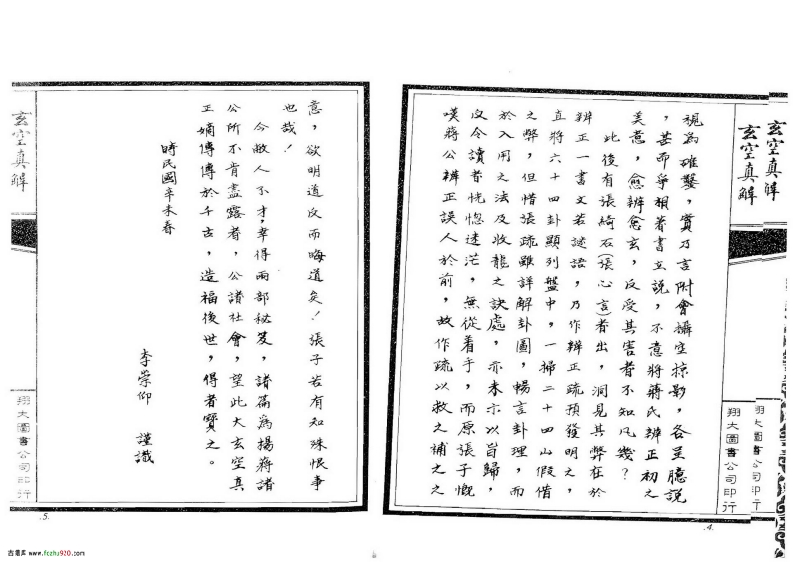 玄空真解
玄空真解
翔大圖書公司印行
翔大圖書公司印行
視為確鑿,實乃言附會攝空掠影,各呈臆說
,甚而爭相著書立說,不意將蔣氏辨正初之
美意,愈辨愈玄,反受其害者不知凡幾?
此後有張綺石(張心言)者出,洞見其弊在於
辨正一書文若謎語,乃作辨正疏預發明之,
直將六十四卦顯列盤中,一掃二十四山假借
之弊,但惜張疏雖詳解卦圖,暢言卦理,而
於入用之法及收龍之訣處,亦未示以旨歸,
反令讀者恍惚迷茫,無從着手,而原張子慨
嘆蔣公辨正誤人於前,故作疏以救之補之之
.4.
意,欲明道反而晦道矣!張子若有知殊恨事
也哉!
今敝人不才,幸得兩部秘笈,諸篇為楊蔣諸
公所不肯盡露者,公諸社會,望此大玄空真
正嫡傳傳於千古,造福後世,得者寶之。
時民國辛未春
李崇仰 謹識
玄空真解
翔大圖書公司印行
.5.
古籍库 www.fczhu920.com